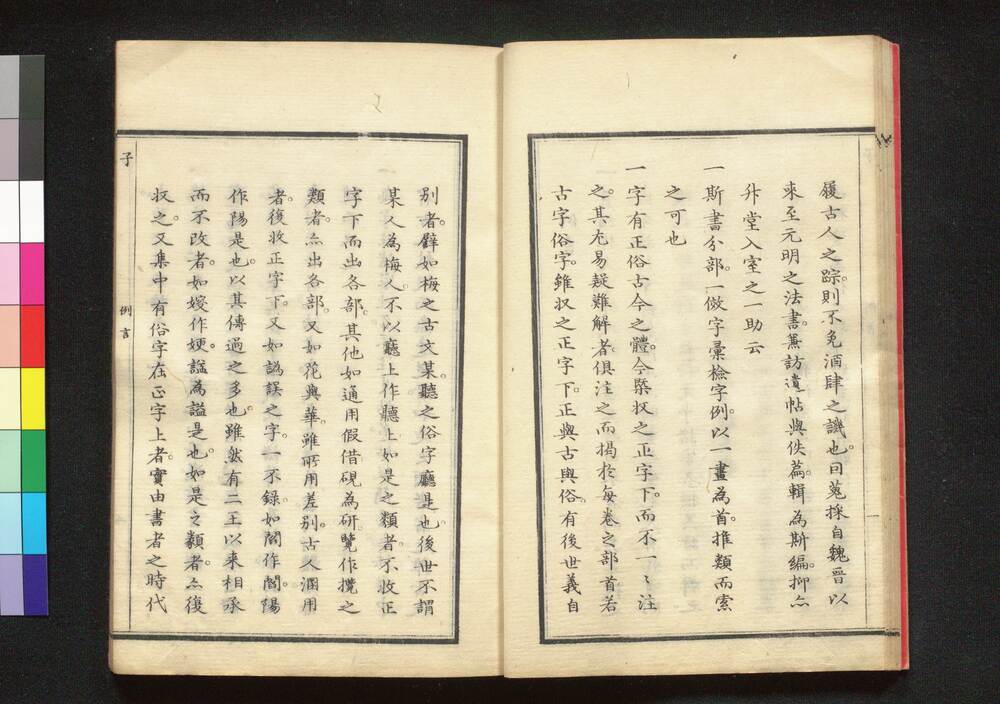 履古人之踪則不免酒肆之譏也因蒐採自魏晋以
来至元明之法書兼訪遺帖與佚篇輯為斯編抑亦
升堂入室之一助云
一斯書分部一倣字彙檢字例以一畫為首推類而索
之可也
一字有正俗古今之體今槩収之正字下而不一〻注
之其尤易疑難解者俱注之而揭於每卷之部首若
古字俗字雖収之正字下正與古與俗有後世義自
別者譬如梅之古文某聽之俗字廳是也後世不謂
某人為梅人不以廳上作聽上如是之類者不收正
字下而出各部其他如通用假借硯為研覽作攬之
類者亦出各部又如花與華雖所用差別古人溷用
者復收正字下又如譌誤之字一不錄如閻作閤陽
作陽是也以其傳過之多也雖然有二王以来相承
而不改者如嫂作㛐諡為謚是也如是之類者亦復
収之又集中有俗字在正字上者實由書者之時代
子
例言